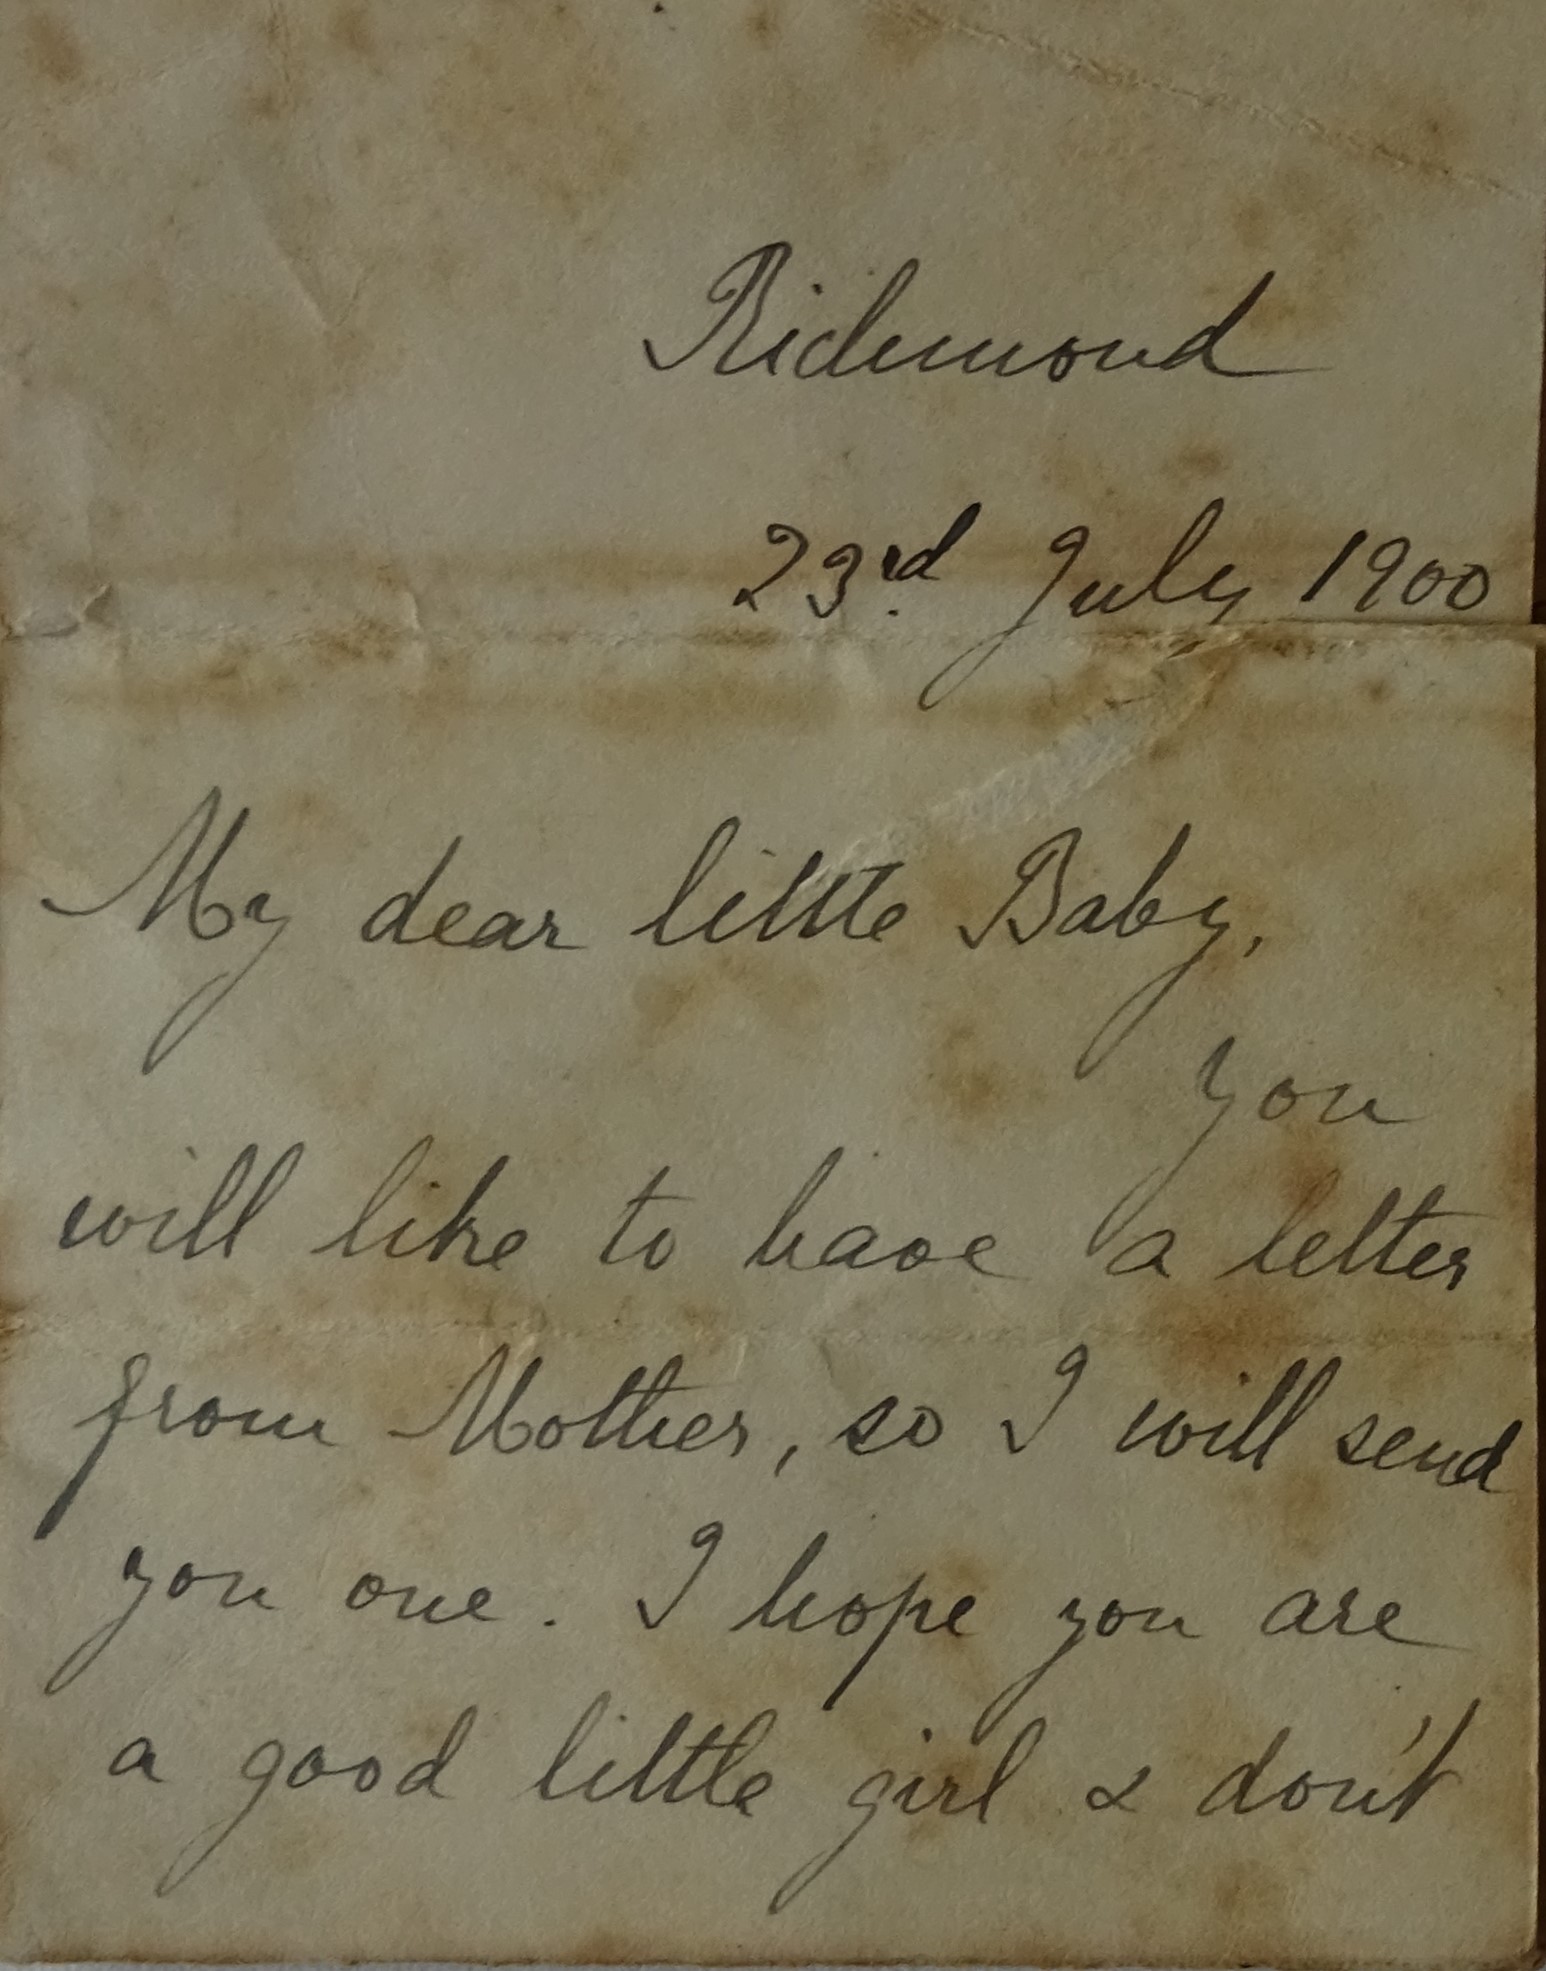 Richmond
23rd July 1900
My dear little Baby,
you
will like to have a letter
from Mother, so I will send
you one. I hope you are
a good little girl & don't